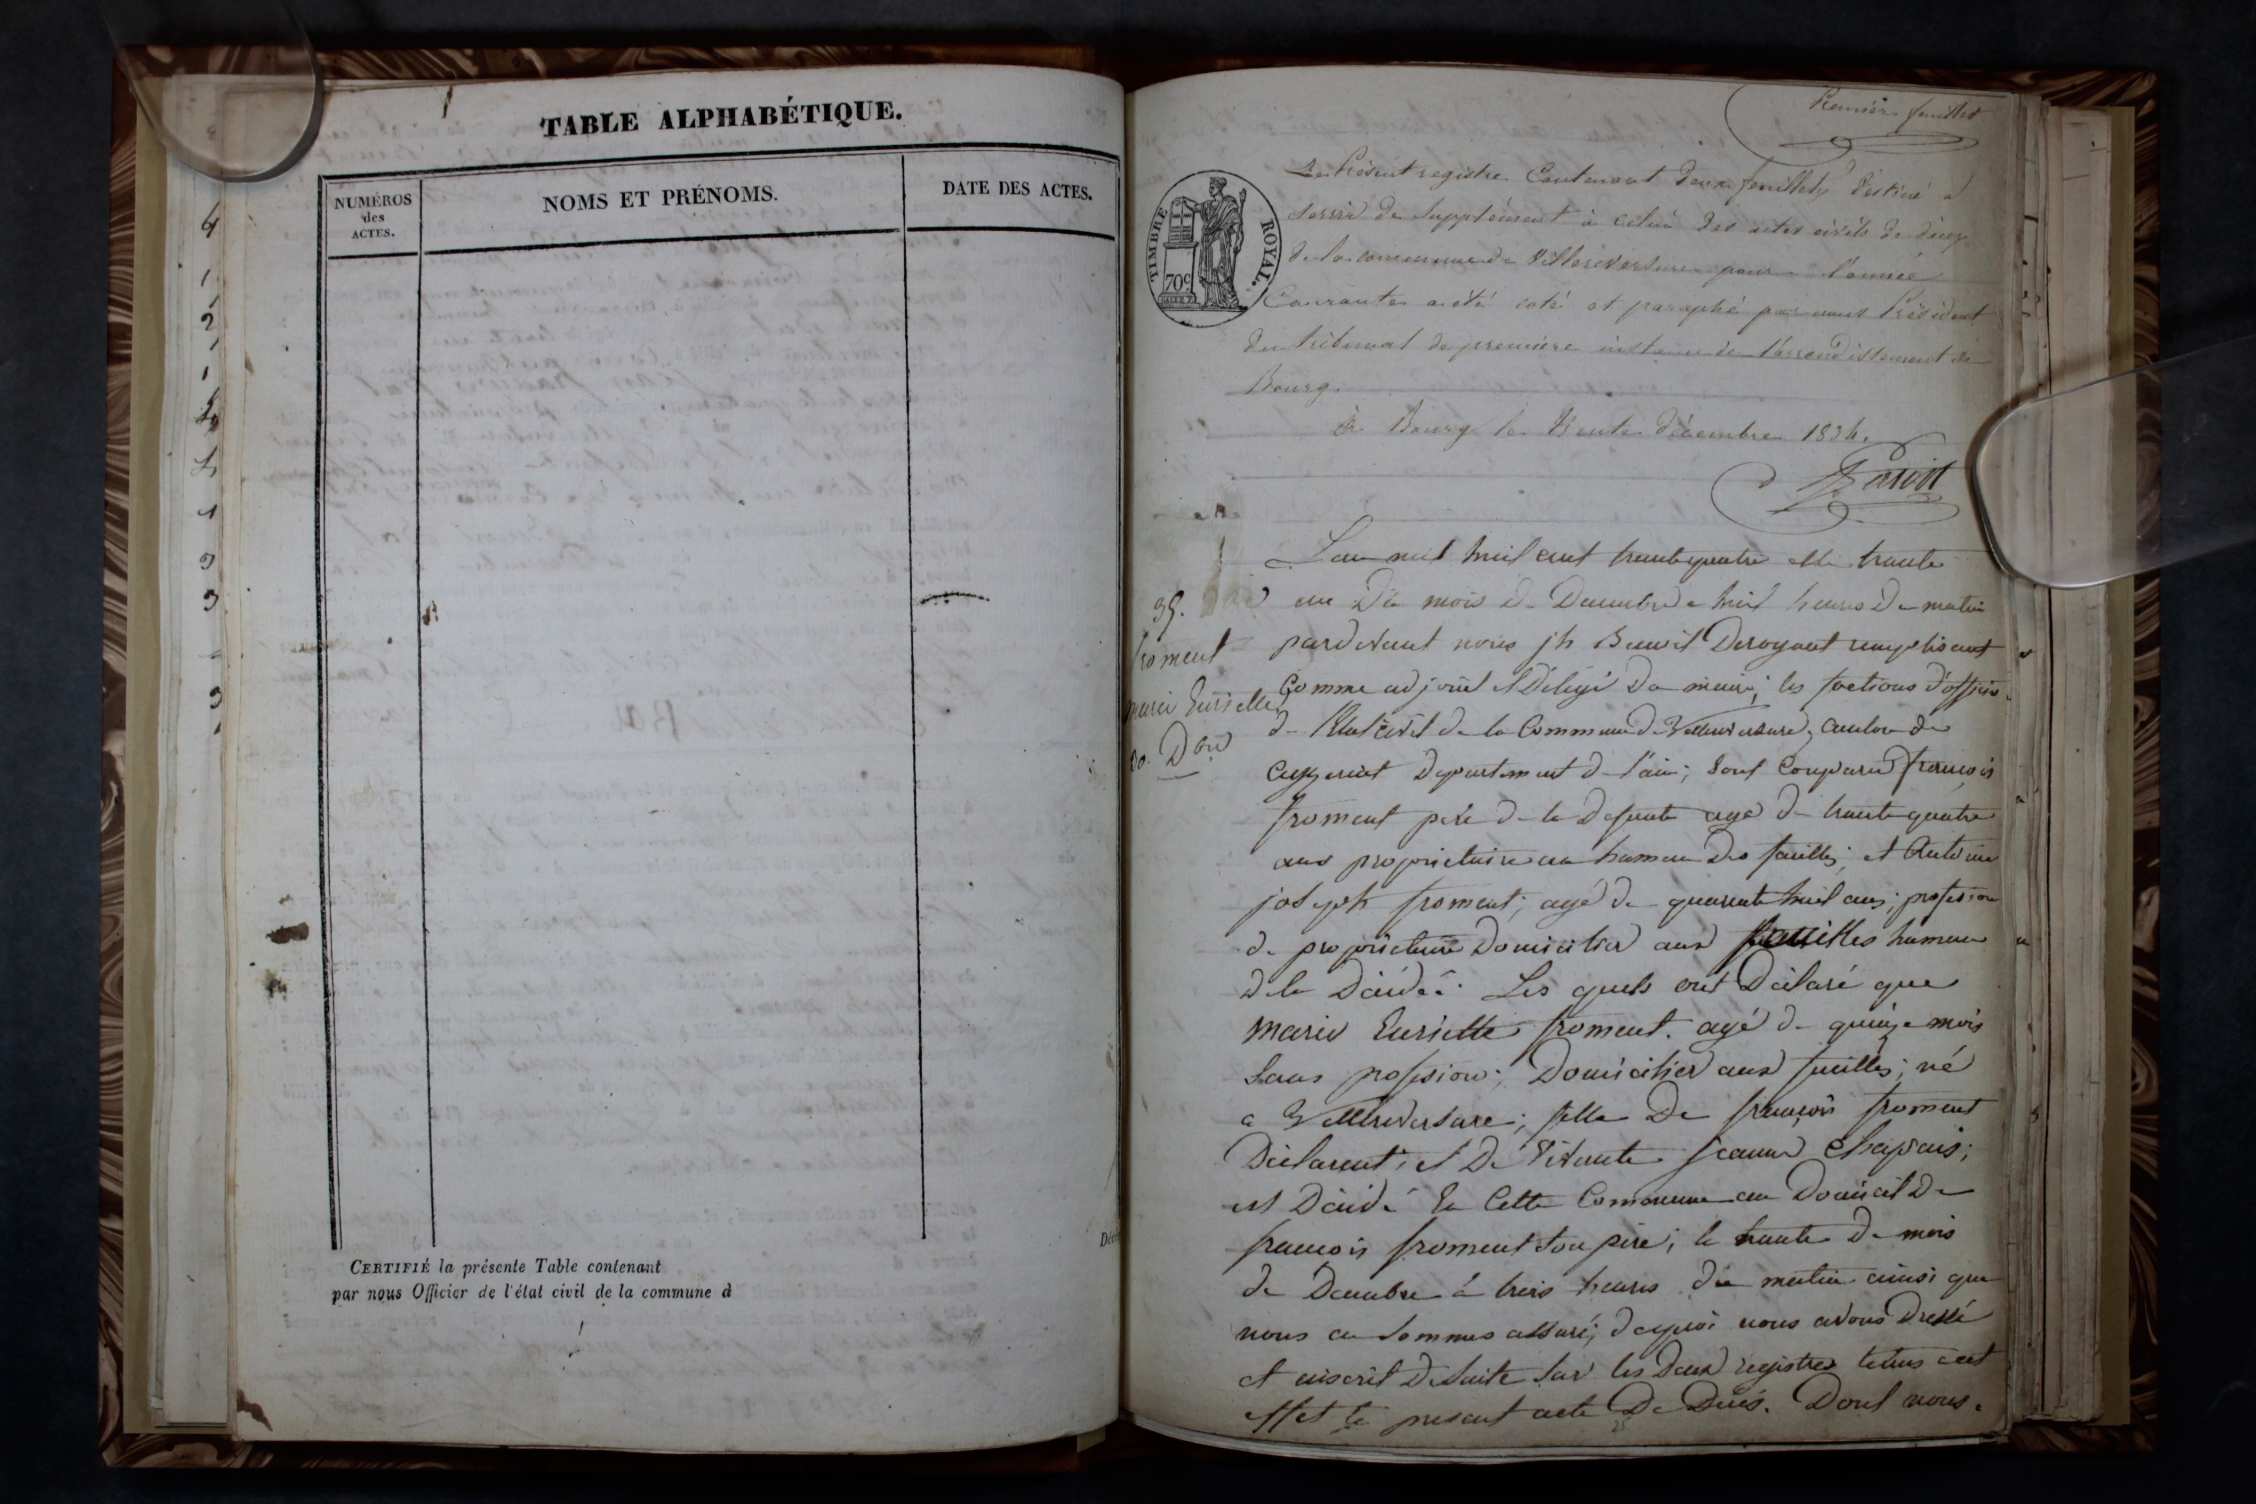 TABLE ALPHABÉTIQUE.
NUMÉROS
des
ACTES.
NOMS ET PRÉNOMS.
DATE DES ACTES.
CERTIFIÉ la présente Table contenant
par nous Officier de l'état civil de la commune d
Premier feuillet
TIMBRE ROYAL.
70c
Le Présent registre Contenant deux feuillets destiné à
servir de Supplément à celui des actes civils de décès
de la commune de Villereversure pour l'année
Courante a été coté et paraphé par nous Président
du tribunal de première instance de l'arrondissement de
Bourg.
à Bourg le trente décembre 1834.
35.
froment
marie Euriette
L'an mil huit cent trente quatre et le trente
un Du mois de Decembre a huit heures Du matin
pardevant nous jh Benoit Deroyant remplisant
Comme adjoint et Délégé Du maire; les foctions d'offisie
de l'état civil de la Commune De Villereversure, canton de
Ceyzeriat Departement de l'ain; sont Comparu françois
froment père de la Defunte agé de trente quatre
ans propriétaire au hameau Des fouilles; et Antoine
joseph froment; agé de quarante huit ans; profession
de propriétaire Domicilier aux fouilles hameau
de la Décédé. Les quels ont Déclaré que
marie Euriette froment. agé de quinze mois
Sans profesion; Domicilier aux fouilles; né
a Villereversure; fille De françois froment
Déclarent; et De vivante jeanne Chapuis;
est Décidé En Cette Commune au Domicil De
françois froment son père; le trente De mois
de Decembre à trois heures du matin ainsi que
nous en sommes assuré; de quoi nous avons Dressé
et inscrit De suite sur les Deux registres tenus a cet
effet le present acte De Décès. Dont nous.